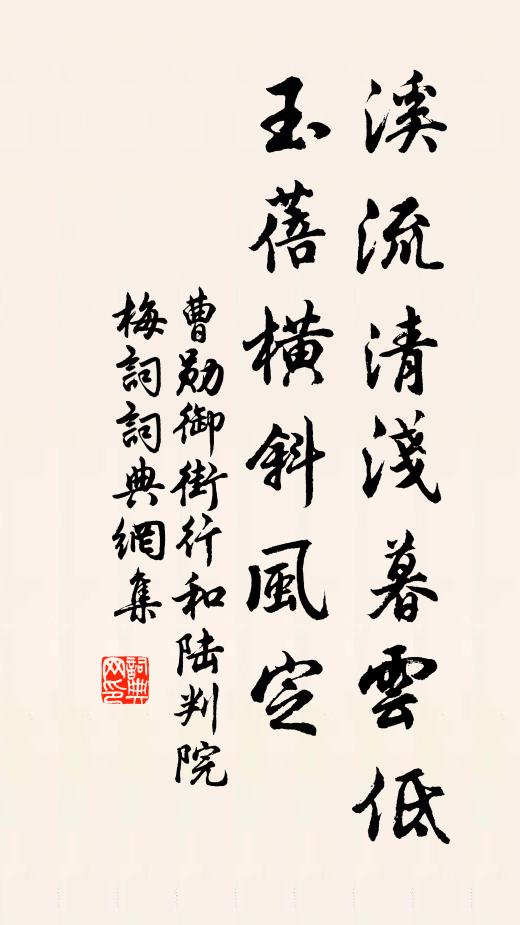 溪流清淺暮雲低
玉蓓橫斜風定
曹勛御街行和陆判院
梅詞詞典網集
詞典
网印